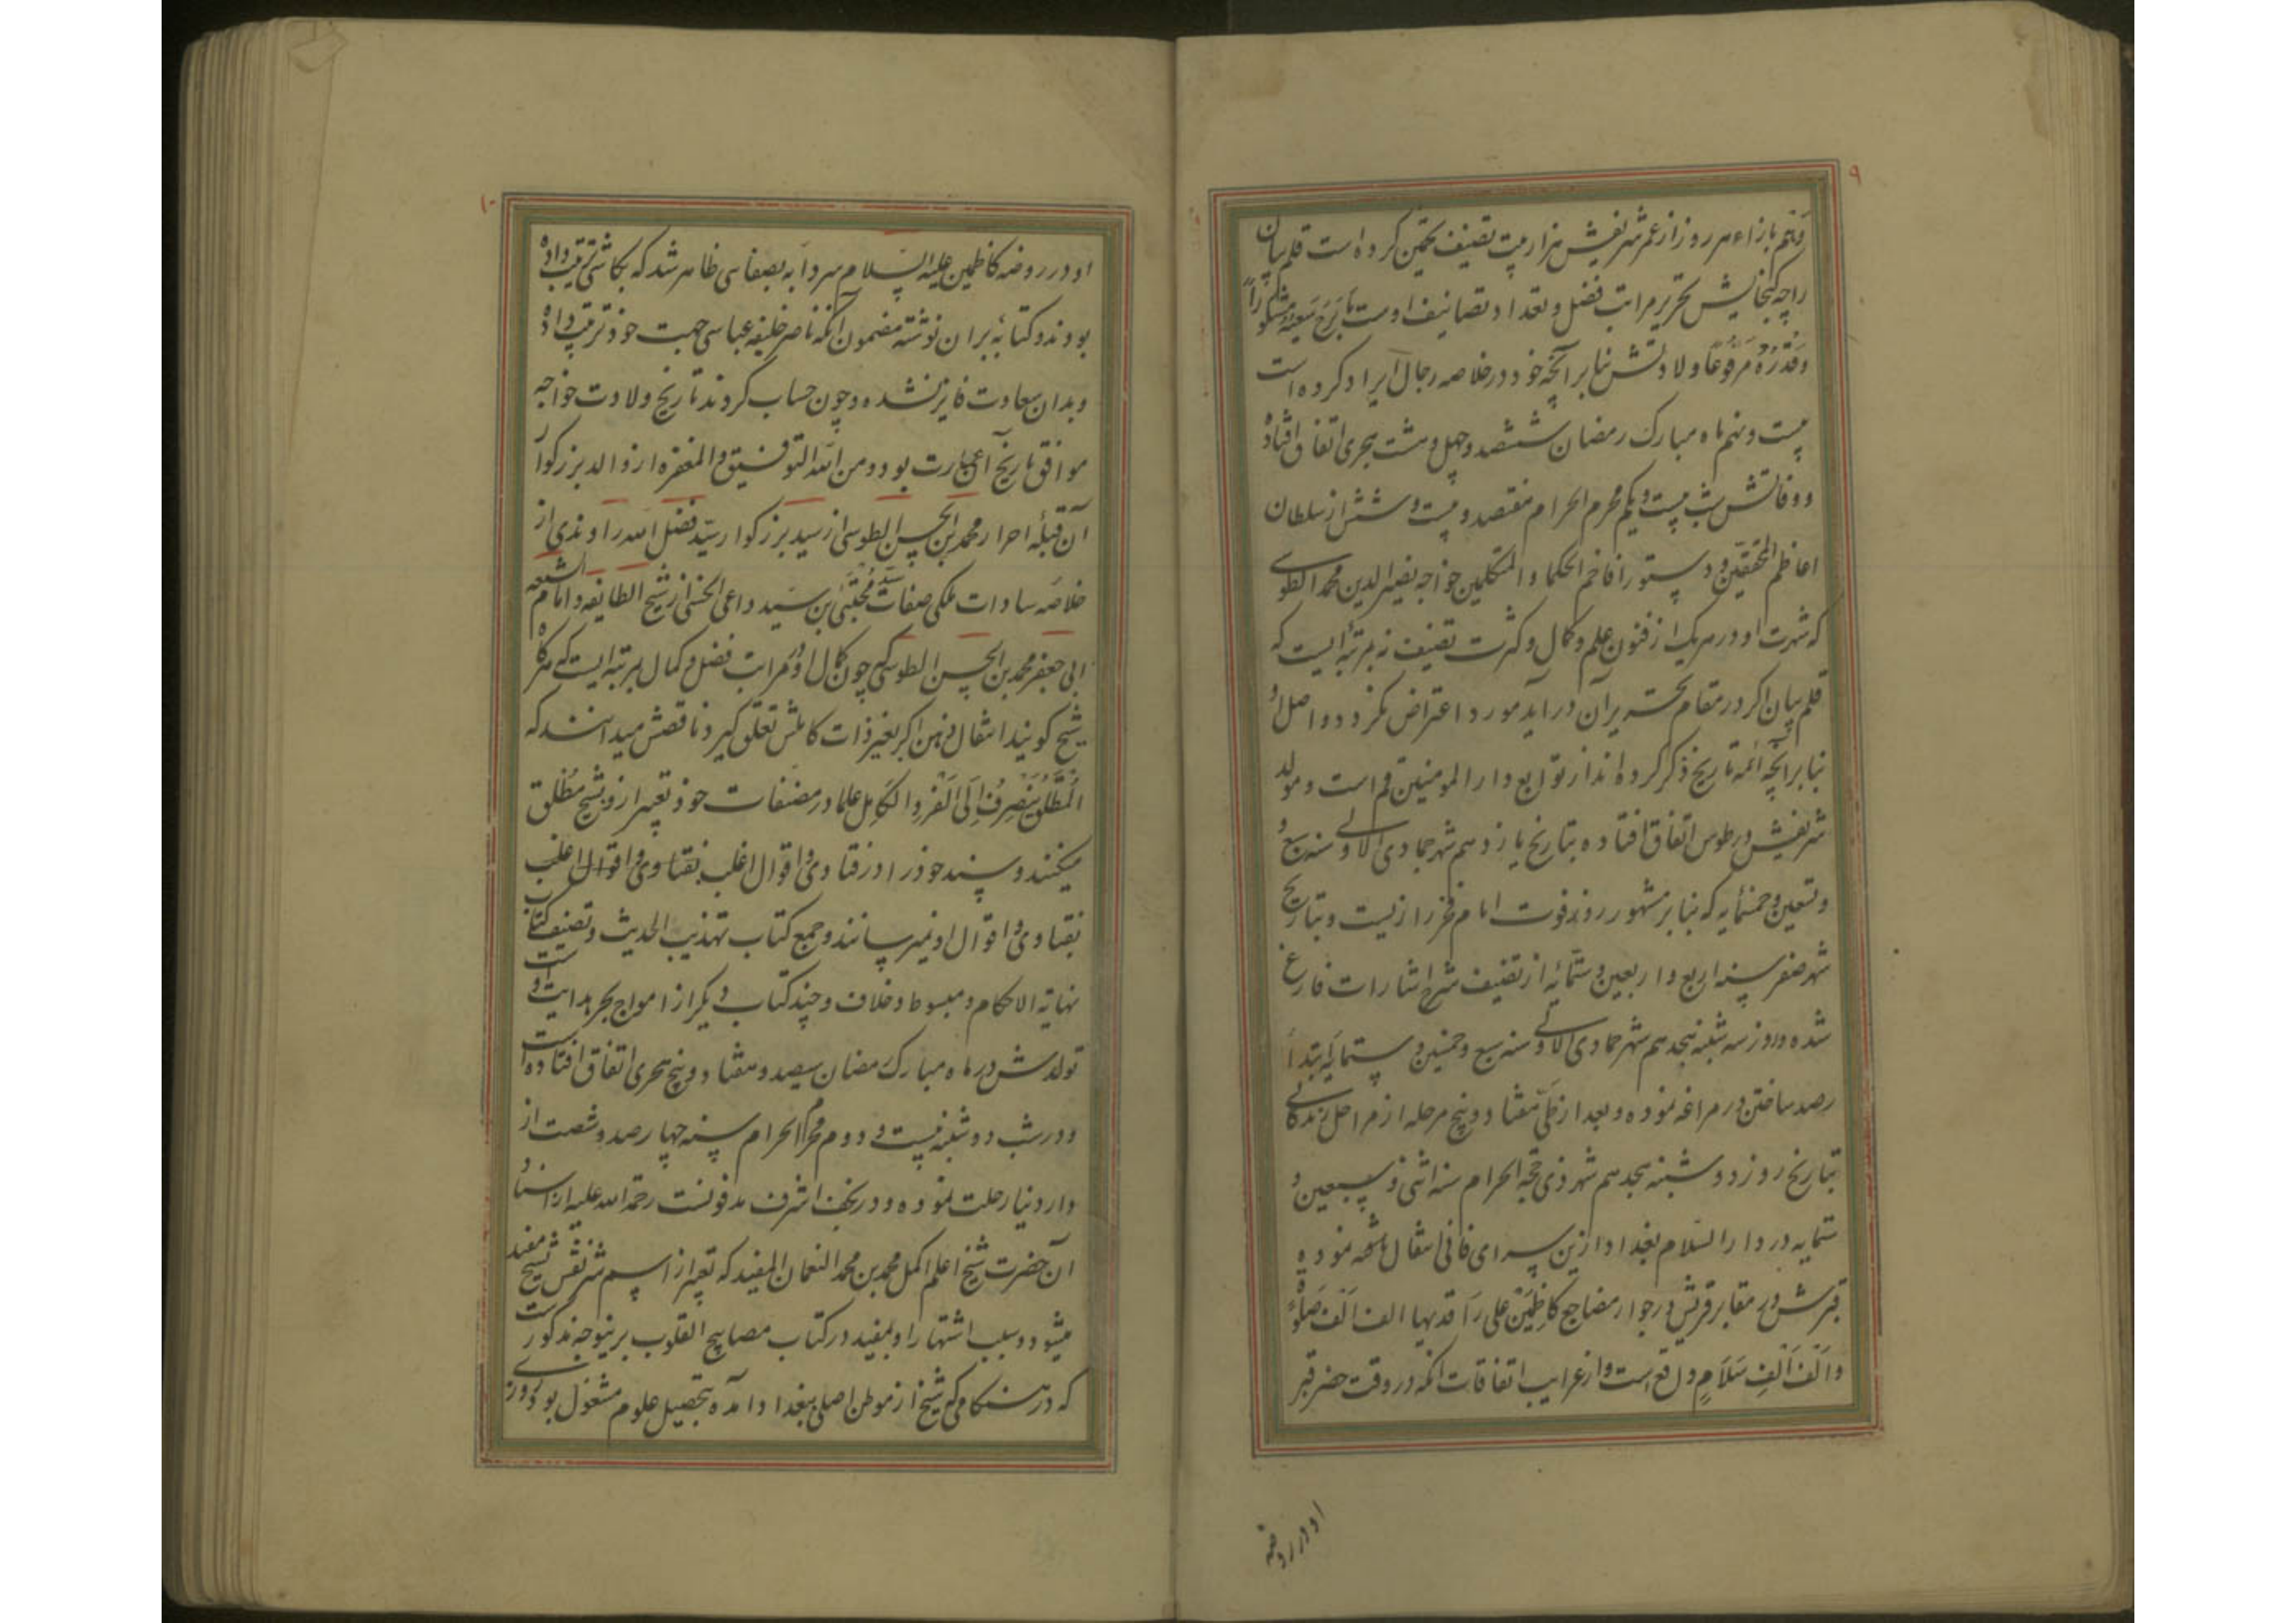 ۹
وفهم بازاء هر روز از عمر شریفش هزار بیت تصنیف تخمین کرده است قلم بیان
را چه گنجایش تحریر مراتب فضل و تعداد تصانیف اوست
وقدره مرفوعا ولادتش بنا بر آنچه خود در خلاصه رجال ایراد کرده است
بیست و نهم ماه مبارک رمضان ششصد و چهل و هشت هجری اتفاق افتاده
و وفاتش شب بیست و یکم محرم الحرام هفتصد و بیست و شش از سلطان
اعاظم المحققین و دستور افاخم الحکما و المتکلمین خواجه نصیر الدین محمد الطوسی
که شهرت او در هر یک از فنون علم و کمال و کثرت تصنیف نه بمرتبه ایست که
قلم بیان اگر در مقام تحریر آن در آید مورد اعتراض نگردد و اصل او
بنا بر آنچه ائمه تاریخ ذکر کرده اند از توابع دار المومنین قم است و مولد
شریفش در طوس اتفاق افتاده بتاریخ یازدهم شهر جمادی الاولی سنه سبع
و تسعین و خمسمایه که بنا بر مشهور روز فوت امام فخر رازیست و بتاریخ
شهر صفر سنه اربع و اربعین و ستمائه از تصنیف شرح اشارات فارغ
شده و روز سه شنبه هیجدهم شهر جمادی الاولی سنه سبع و خمسین و ستمایه ابتدأ
رصد ساختن در مراغه نموده و بعد از طی هفتاد و پنج مرحله از مراحل زندگانی
بتاریخ روز دوشنبه هیجدهم شهر ذی حجة الحرام سنه اثنی و سبعین و
ستمایه در دار السلام بغداد ازین سرای فانی انتقال نموده
قبرش در مقابر قریش در جوار مضاجع کاظمین علی راقدیها الف الف صلوة
و الف الف سلام واقع است و از غرایب اتفاقات آنکه در وقت حضر قبر
او در روضه
۱۰
او در روضه کاظمین علیه السلام سردابه بصفاسی ظاهر شد که بکاشی ترتیب داده
بودند و کتابه بران نوشته مضمون آنکه ناصر خلیفه عباسی جهت خود ترتیب داده
و بدان سعادت فایز نشده و چون حساب کردند تاریخ ولادت خواجه
موافق تاریخ آن عمارت بود و من الله التوفیق و المغفره از والد بزرگوار
آن قبله احرار محمد بن الحسن الطوسی از سید بزرگوار سید فضل الله راوندی از
خلاصه سادات ملکی صفات سید مجتبی بن سید داعی الحسنی از شیخ الطایفه و امام الشیعه
ابی جعفر محمد بن الحسن الطوسی که چون کمال او در مراتب فضل و کمال بمرتبه ایست که هرگاه
شیخ گویند انتقال ذهن اگر بغیر ذات کاملش تعلق گیرد ناقصش میدانند که
المطلق ینصرف الی الفرد الکامل علما در مصنفات خود تعبیر ازو بشیخ مطلق
میکنند و پسند خود را در فتاوی و اقوال اغلب بفتاوی و اقوال اغلب
بفتاوی و اقوال او میرسانند و جمع کتاب تهذیب الحدیث و تصنیف کتاب
نهایة الاحکام و مبسوط و خلاف و چند کتاب دیگر از امواج بحر هدایت اوست
تولدش در ماه مبارک رمضان سیصد و هشتاد و پنج هجری اتفاق افتاده است
و در شب دوشنبه بیست و دوم محرم الحرام سنه چهارصد و شصت از
دار دنیا رحلت نموده و در نجف اشرف مدفونست رحمة الله علیه از استاد
آن حضرت شیخ اعلم اکمل محمد بن محمد النعمان المفید که تعبیر از اسم شریفش بشیخ مفید
میشود و سبب اشتهار او بمفید در کتاب مصابیح القلوب برینوجه مذکور است
که در هنگامی که شیخ از موطن اصلی ببغداد آمده بتحصیل علوم مشغول بود روزی